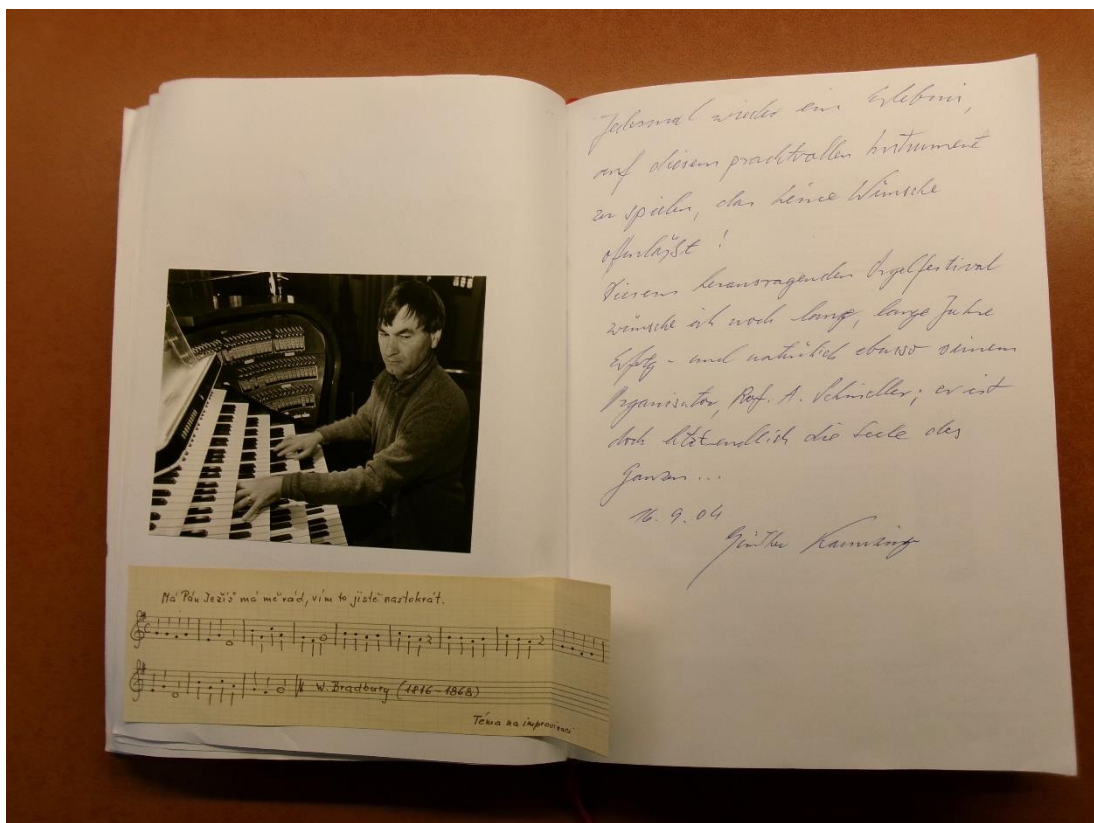 Má Pán Ježíš má mě rád, vím to jistě nastokrát.
W. Bradbury (1816-1868)
Téma na improvizaci
Jedesmal wieder ein Erlebnis,
auf diesem prachtvollen Instrument
zu spielen, das keine Wünsche
offenläßt!
Diesem herausragenden Orgelfestival
wünsche ich noch lange, lange Jahre
Erfolg - und natürlich ebenso seinem
Organisator, Prof. A. Schindler; er ist
doch letztendlich die Seele des
Ganzen...
16. 9. 04
Günther Kaunzinger